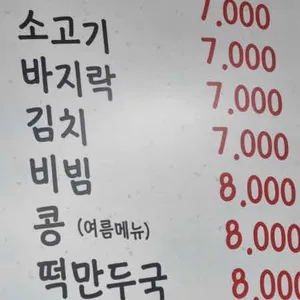 7.000
소고기 7.000
바지락 7.000
김치 7.000
비빔 8.000
콩 (여름메뉴) 8.000
떡만두국 8.000